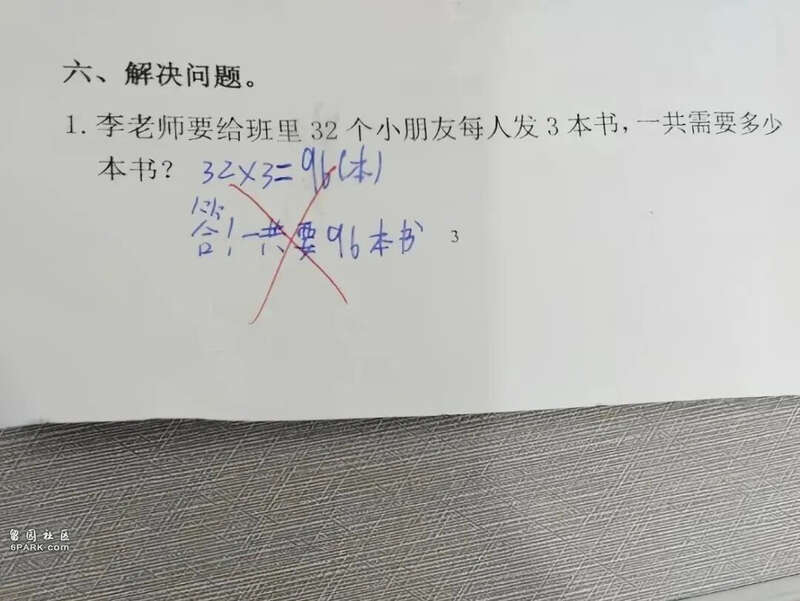 六、解决问题。
1. 李老师要给班里 32 个小朋友每人发 3 本书,一共需要多少
本书? 32×3=96(本)
答!一共要96本书
3
留园社区
6PARK.com